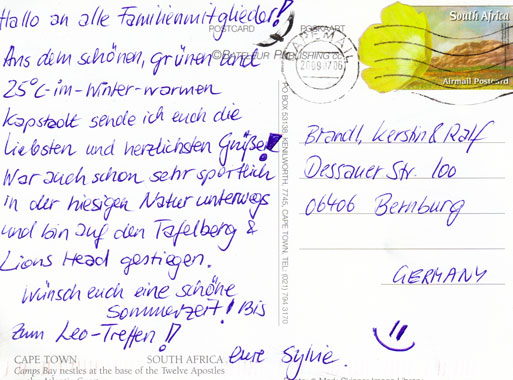 Hallo an alle Familienmitglieder!
Aus dem schönen, grünen und
25°C-im-Winter-warmen
Kapstadt sende ich euch die
liebsten und herzlichsten Grüße!
War auch schon sehr sportlich
in der hiesigen Natur unterwegs
und bin auf den Tafelberg &
Lions Head gestiegen.
Wünsch euch eine schöne
Sommerzeit! Bis
zum Leo-Treffen!!
Eure Sylvie.
CAPE TOWN SOUTH AFRICA
Camps Bay nestles at the base of the Twelve Apostles
POSTCARD POSKAART
PUBLISHING
PO BOX 53138, KENILWORTH, 7745, CAPE TOWN, TEL: (021)
AIRMAIL
South Africa
Airmail Postcard
Brandl, Kerstin & Ralf
Dessauer Str. 100
06406 Bernburg
GERMANY